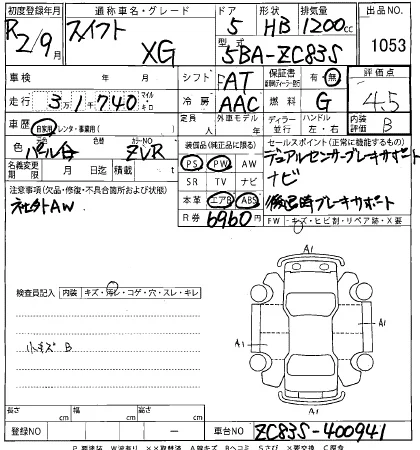 初度登録年月 通称車名・グレード ドア 形状 排気量 出品NO
R2/9 スイフト XG 5 HB 1200cc 1053
型式 5BA-ZC83S
車検 年 月 シフト FAT 保証書 有・無 評価点
走行 3万1740 マイル キロ 冷房 AAC 燃料 G 4.5
車歴 自家用・レンタ・事業用( ) 定員 人 外車モデル 年 ディーラー 並行 ハンドル 左・右 内装評価 B
色 パール白 色替 カラーNO ZVR 装備品(純正品に限る) セールスポイント(正常に機能するもの)
PS PW AW デュアルセンサーブレーキサポート
名義変更期限 月 日迄 積載 t SR TV ナビ ナビ
注意事項(欠品・修復・不具合箇所および状態) 本革 エアB ABS 後退時ブレーキサポート
社外AW R券 6960円 FW-キズ・ヒビ・リペア跡・X要
検査員記入 内装 キズ・汚レ・コゲ・穴・スレ・キレ
小キズ B
A1
A1
A1
A1
長さ cm 幅 cm 高さ cm
登録NO - 車台NO ZC83S-400941